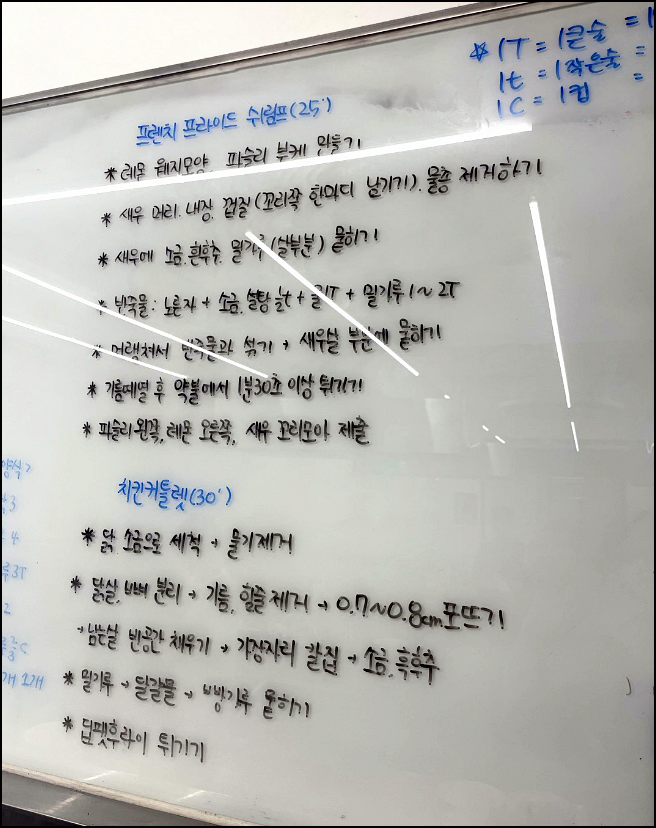 ☆ 1T = 1큰술 =
1t = 1작은술 =
1C = 1컵 =
프렌치 프라이드 쉬림프(25')
* 레몬 웨지모양, 파슬리 부케 만들기
* 새우 머리, 내장, 껍질(꼬리쪽 한마디 남기기), 물총 제거하기
* 새우에 소금, 흰후추, 밀가루(살부분) 묻히기
* 반죽물: 노른자 + 소금, 설탕 ½t + 물1T + 밀가루 1~2T
* 머랭쳐서 반죽물과 섞기 → 새우살 부분에 묻히기
* 기름예열 후 약불에서 1분30초 이상 튀기기
* 파슬리 왼쪽, 레몬 오른쪽, 새우 꼬리모아 제출
치킨커틀렛(30')
* 닭 소금으로 세척 → 물기제거
* 닭살, 뼈 분리 → 기름, 힘줄 제거 → 0.7~0.8cm 포뜨기
→ 남는살 빈공간 채우기 → 가장자리 칼집 → 소금, 흑후추
* 밀가루 → 달걀물 → 빵가루 묻히기
* 딥팻후라이 튀기기